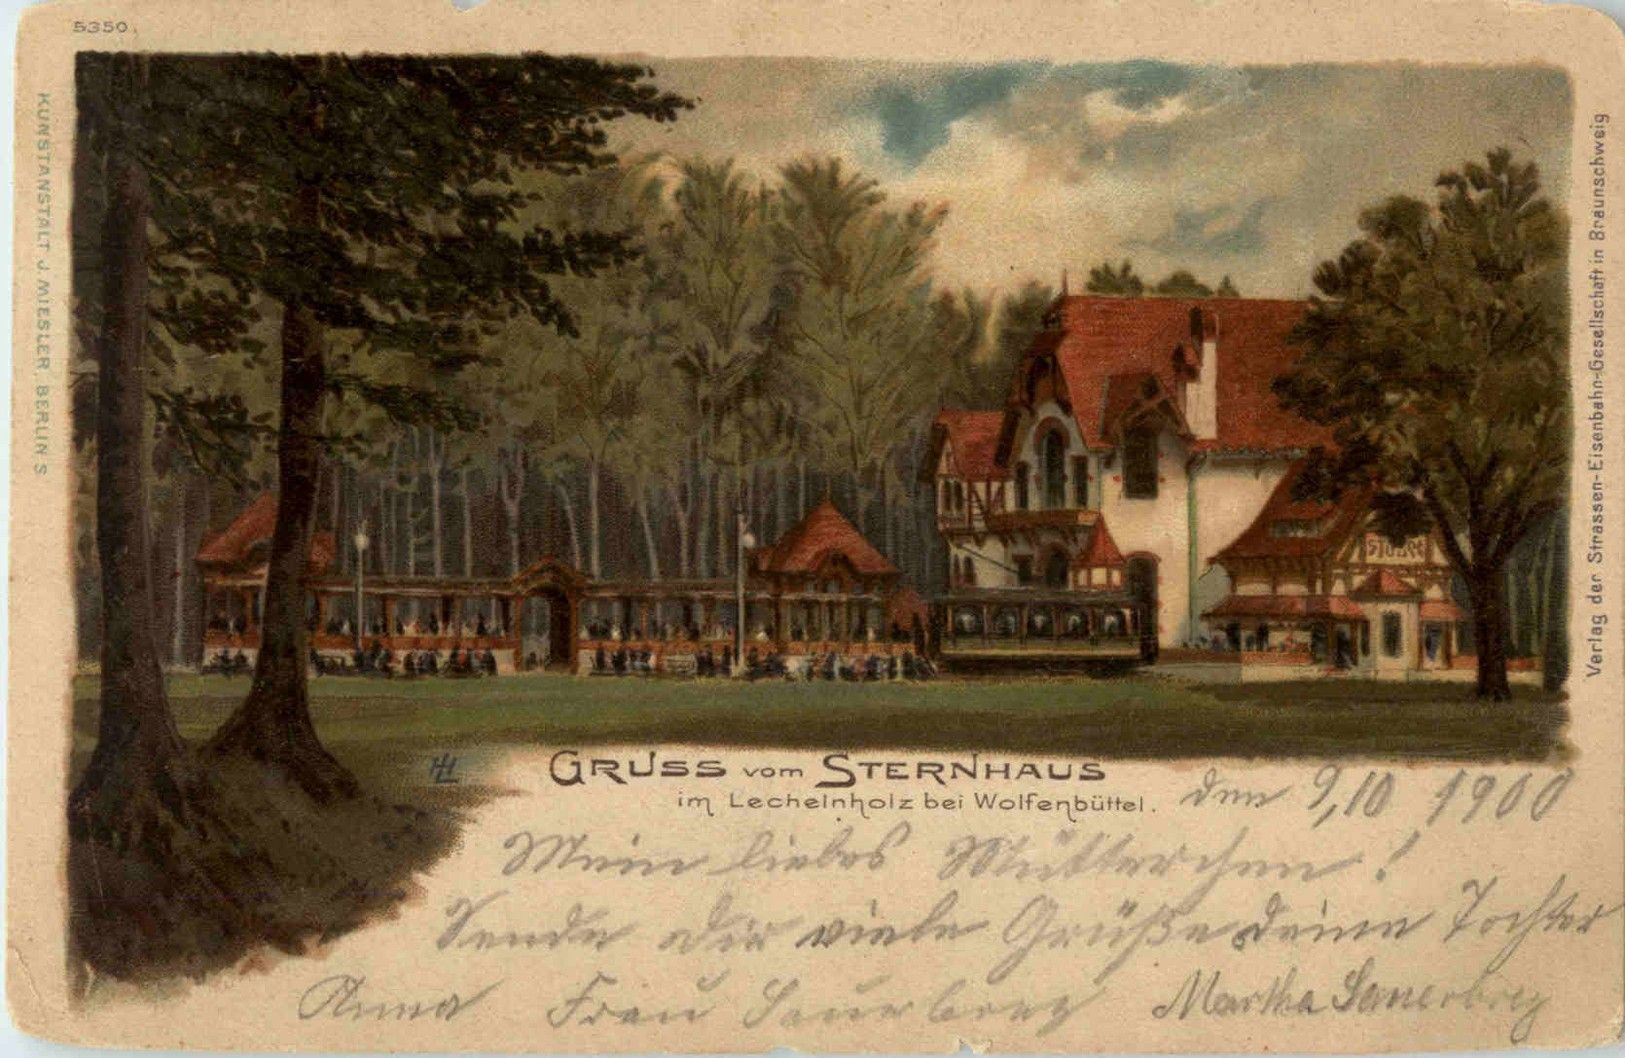 5350.
KUNSTANSTALT J. MIESLER, BERLIN S
Verlag der Strassen-Eisenbahn-Gesellschaft in Braunschweig
GRUSS vom STERNHAUS
im Lechelnholz bei Wolfenbüttel.
den 9,10 1900
Mein liebes Mütterchen!
Sende dir viele Grüße deine Tochter
Anna Frau Sauerbrey Martha Sauerbrey